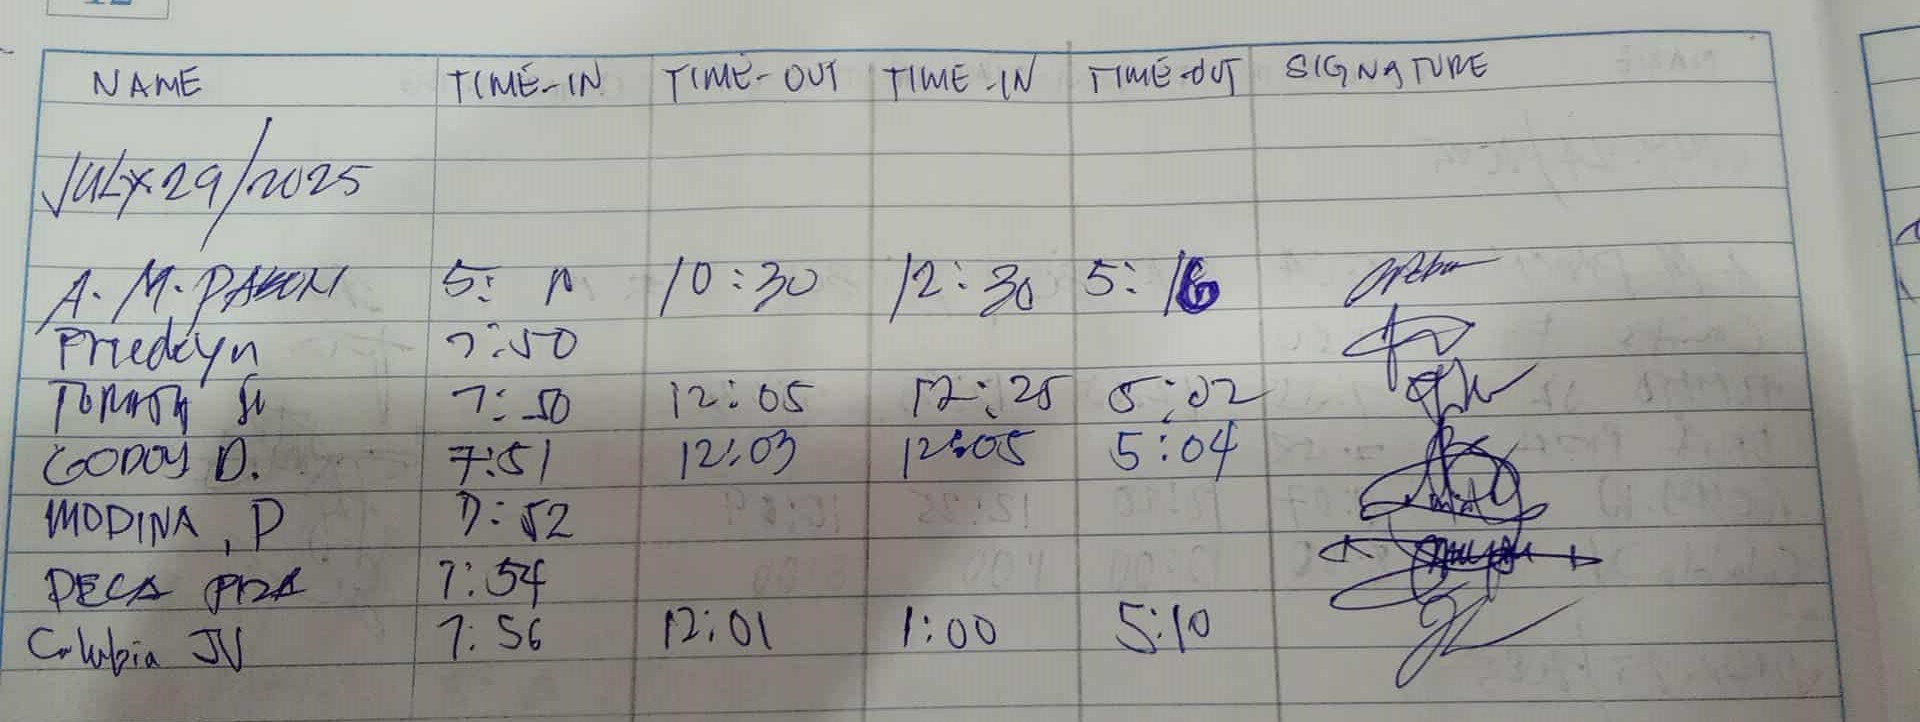 12
NAME TIME-IN TIME-OUT TIME-IN TIME-OUT SIGNATURE
JULY 29/2025
A. M. 5: 10:30 12:30 5:16
Priedeyn 7:50
7:50 12:05 12:25 5:02
GODOY D. 7:51 12:03 12:05 5:04
MODINA, D 7:52
DECA 7:54
Columbia JV 7:56 12:01 1:00 5:10